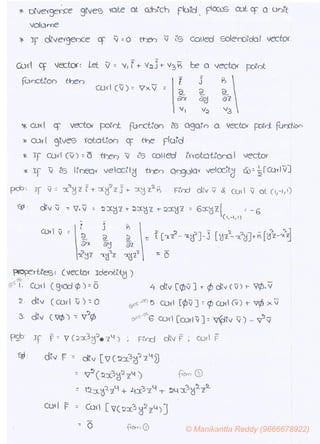 * Divergence gives rate at which fluid flows out of a unit
volume
* If divergence of v̄=0 then v̄ is called solenoidal vector.
Curl of vector: Let v̄ = v₁ī + v₂j̄ + v₃k̄ be a vector point
function then
curl (v̄) = ∇×v̄ = | ī j̄ k̄ |
| ∂/∂x ∂/∂y ∂/∂z |
| v₁ v₂ v₃ |
* curl of vector point function is again a vector point function
* curl gives rotation of the fluid
* If curl (v̄) = ō then v̄ is called irrotational vector
* If v̄ is linear velocity then angular velocity ω̄ = ½[curl v̄]
prob: If v̄ = x²yz ī + xy²z j̄ + xyz²k̄ Find div v̄ & curl v̄ at (1,-1,1)
Sol: div v̄ = ∇.v̄ = 2xyz + 2xyz + 2xyz = 6xyz|(1,-1,1) = -6
curl v̄ = | ī j̄ k̄ |
| ∂/∂x ∂/∂y ∂/∂z |
| x²yz xy²z xyz² | = ī [xz²-xy²] - j̄ [yz²-x²y] + k̄ [y²z-x²z]
= ō
Properties: (vector identity)
1. curl (grad ϕ) = ō
4. div [ϕv̄] = ϕ div(v̄) + ∇ϕ.v̄
2. div (curl v̄) = 0
5 curl [ϕv̄] = ϕ curl(v̄) + ∇ϕ × v̄
3. div (∇ϕ) = ∇²ϕ
6 curl [curl v̄] = ∇(div v̄) - ∇²v̄
prob: If F = ∇(2x³y²z⁴) ; Find div F , curl F
Sol: div F = div [∇(2x³y²z⁴)]
= ∇²(2x³y²z⁴) from ③
= 12xy²z⁴ + 4x³z⁴ + 24x³y²z²
curl F = curl [∇(2x³y²z⁴)]
= ō from ①
© Manikantta Reddy (9666678922)